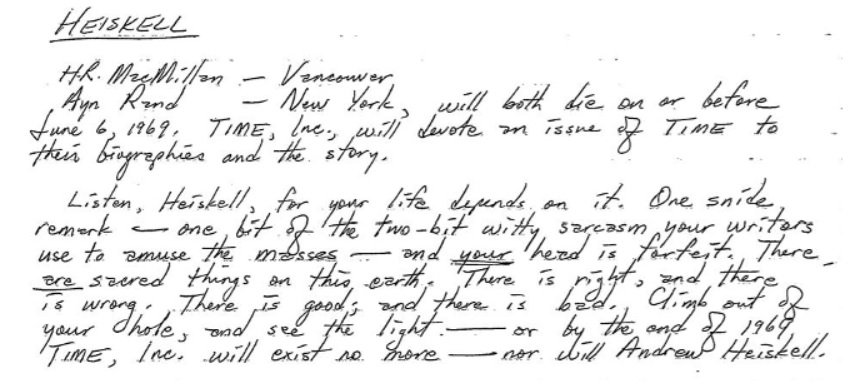 HEISKELL
H.R. MacMillan — Vancouver
Ayn Rand — New York, will both die on or before
June 6, 1969. TIME, Inc., will devote an issue of TIME to
their biographies and the story.
Listen, Heiskell, for your life depends on it. One snide
remark — one bit of the two-bit witty sarcasm your writers
use to amuse the masses — and your head is forfeit. There
are sacred things on this earth. There is right, and there
is wrong. There is good; and there is bad. Climb out of
your hole, and see the light — or by the end of 1969
TIME, Inc. will exist no more — nor will Andrew Heiskell.